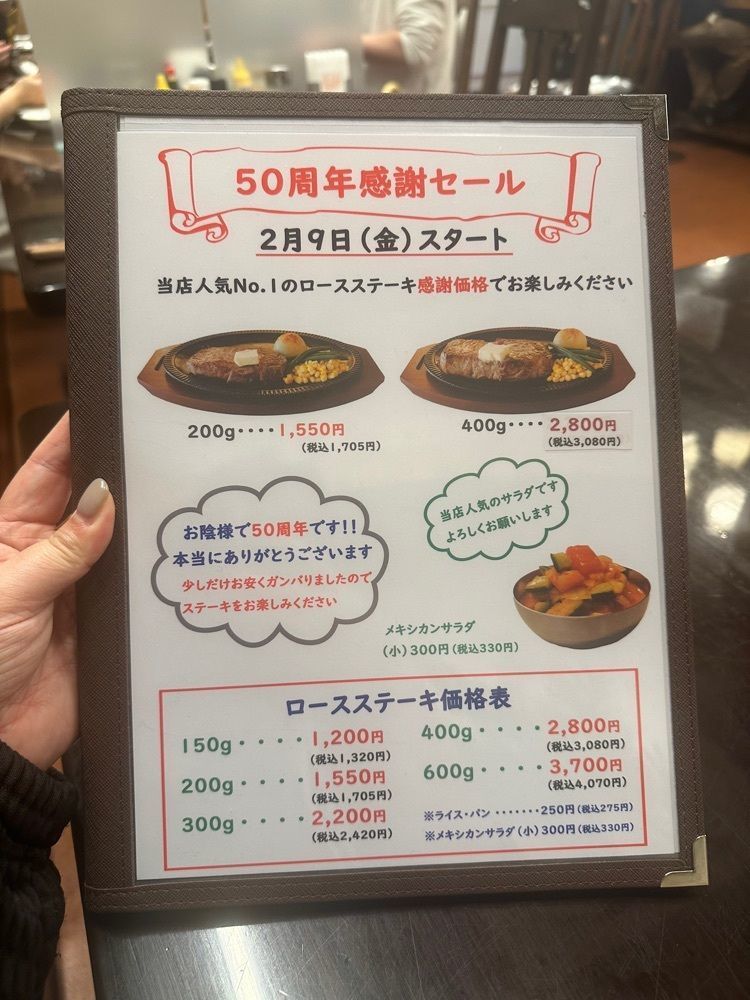 50周年感謝セール
2月9日(金)スタート
当店人気No.1のロースステーキ感謝価格でお楽しみください
200g････1,550円
(税込1,705円)
400g････2,800円
(税込3,080円)
お陰様で50周年です!!
本当にありがとうございます
少しだけお安くガンバりましたので
ステーキをお楽しみください
当店人気のサラダです
よろしくお願いします
メキシカンサラダ
(小)300円(税込330円)
ロースステーキ価格表
150g････1,200円
(税込1,320円)
200g････1,550円
(税込1,705円)
300g････2,200円
(税込2,420円)
400g････2,800円
(税込3,080円)
600g････3,700円
(税込4,070円)
※ライス・パン･･･････250円(税込275円)
※メキシカンサラダ(小)300円(税込330円)